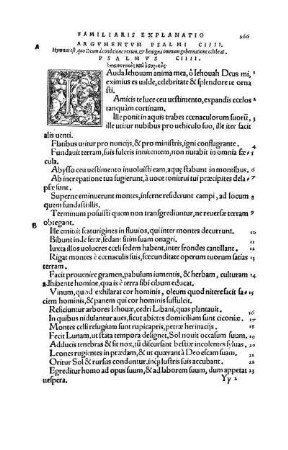 FAMILIARIS EXPLANATIO 266
A ARGVMENTVM PSALMI CIIII.
Hymnus est, quo Deum
PSALMVS CIIII.
LAuda Iehouam anima mea, ô Iehouah Deus mi,
eximius es ualde, celebritate & splendore te orna
sti.
Amicis te luce ceu uestimento, expandis cœlos
tanquàm cortinam.
Ille ponit in aquis trabes cœnaculorum suorũ,
ille utitur nubibus pro uehiculo suo, ille iter facit
alis uenti.
Flatibus utitur pro nuncijs, & pro ministris, igni conflagrante.
Fundauit terram, suis fulcris innitentem, non nutabit in omnia se
cula.
Abysso ceu uestimento inuoluisti eam, aquę stabunt in montibus.
Ab increpatione tua fugierunt, à uoce tonitrui tui præcipites dela
psę sunt.
Superne eminuerunt montes, inferne residerunt campi, ad locum
quem fundasti illis.
Terminum posuisti quem non transgrediuntur, ne reuerse terram
B obtegant.
Ille emittit scaturigines in fluuios, qui inter montes decurrunt.
Bibunt inde feræ, sedant sitim suam onagri.
Iuxta illos uolucres cœli sedem habent, inter frondes cantillant.
Rigat montes è cœnaculis suis, fœcunditate operum tuorum satias
terram.
Facit prouenire gramen, pabulum iumentis, & herbam, culturam
adhibente homine, qua is è terra sibi cibum educat.
Vinum, quod exhilarat cor hominis, oleum quod nitere facit fa
ciem hominis, & panem qui cor hominis suffulcit.
Reficiuntur arbores Iehouæ, cedri Libani, quas plantauit.
In quibus nidulantur aues, sicut abietes domicilium sunt ciconiæ.
Montes celsi refugium sunt rupicapris, petræ herinacijs.
Fecit Lunam, ut stata tempora designet, Sol nouit occasum suum.
Adducis tenebras & fit nox, tũ discursant bestiæ incolentes syluas.
Leones rugientes in prædam, & ut quærant à Deo escam suam.
Oritur Sol & rursus conduntur, inq; lustris suis accubant.
Egreditur homo ad opus suum, & ad laborem suum, dum appetat
uespera. Yy 2